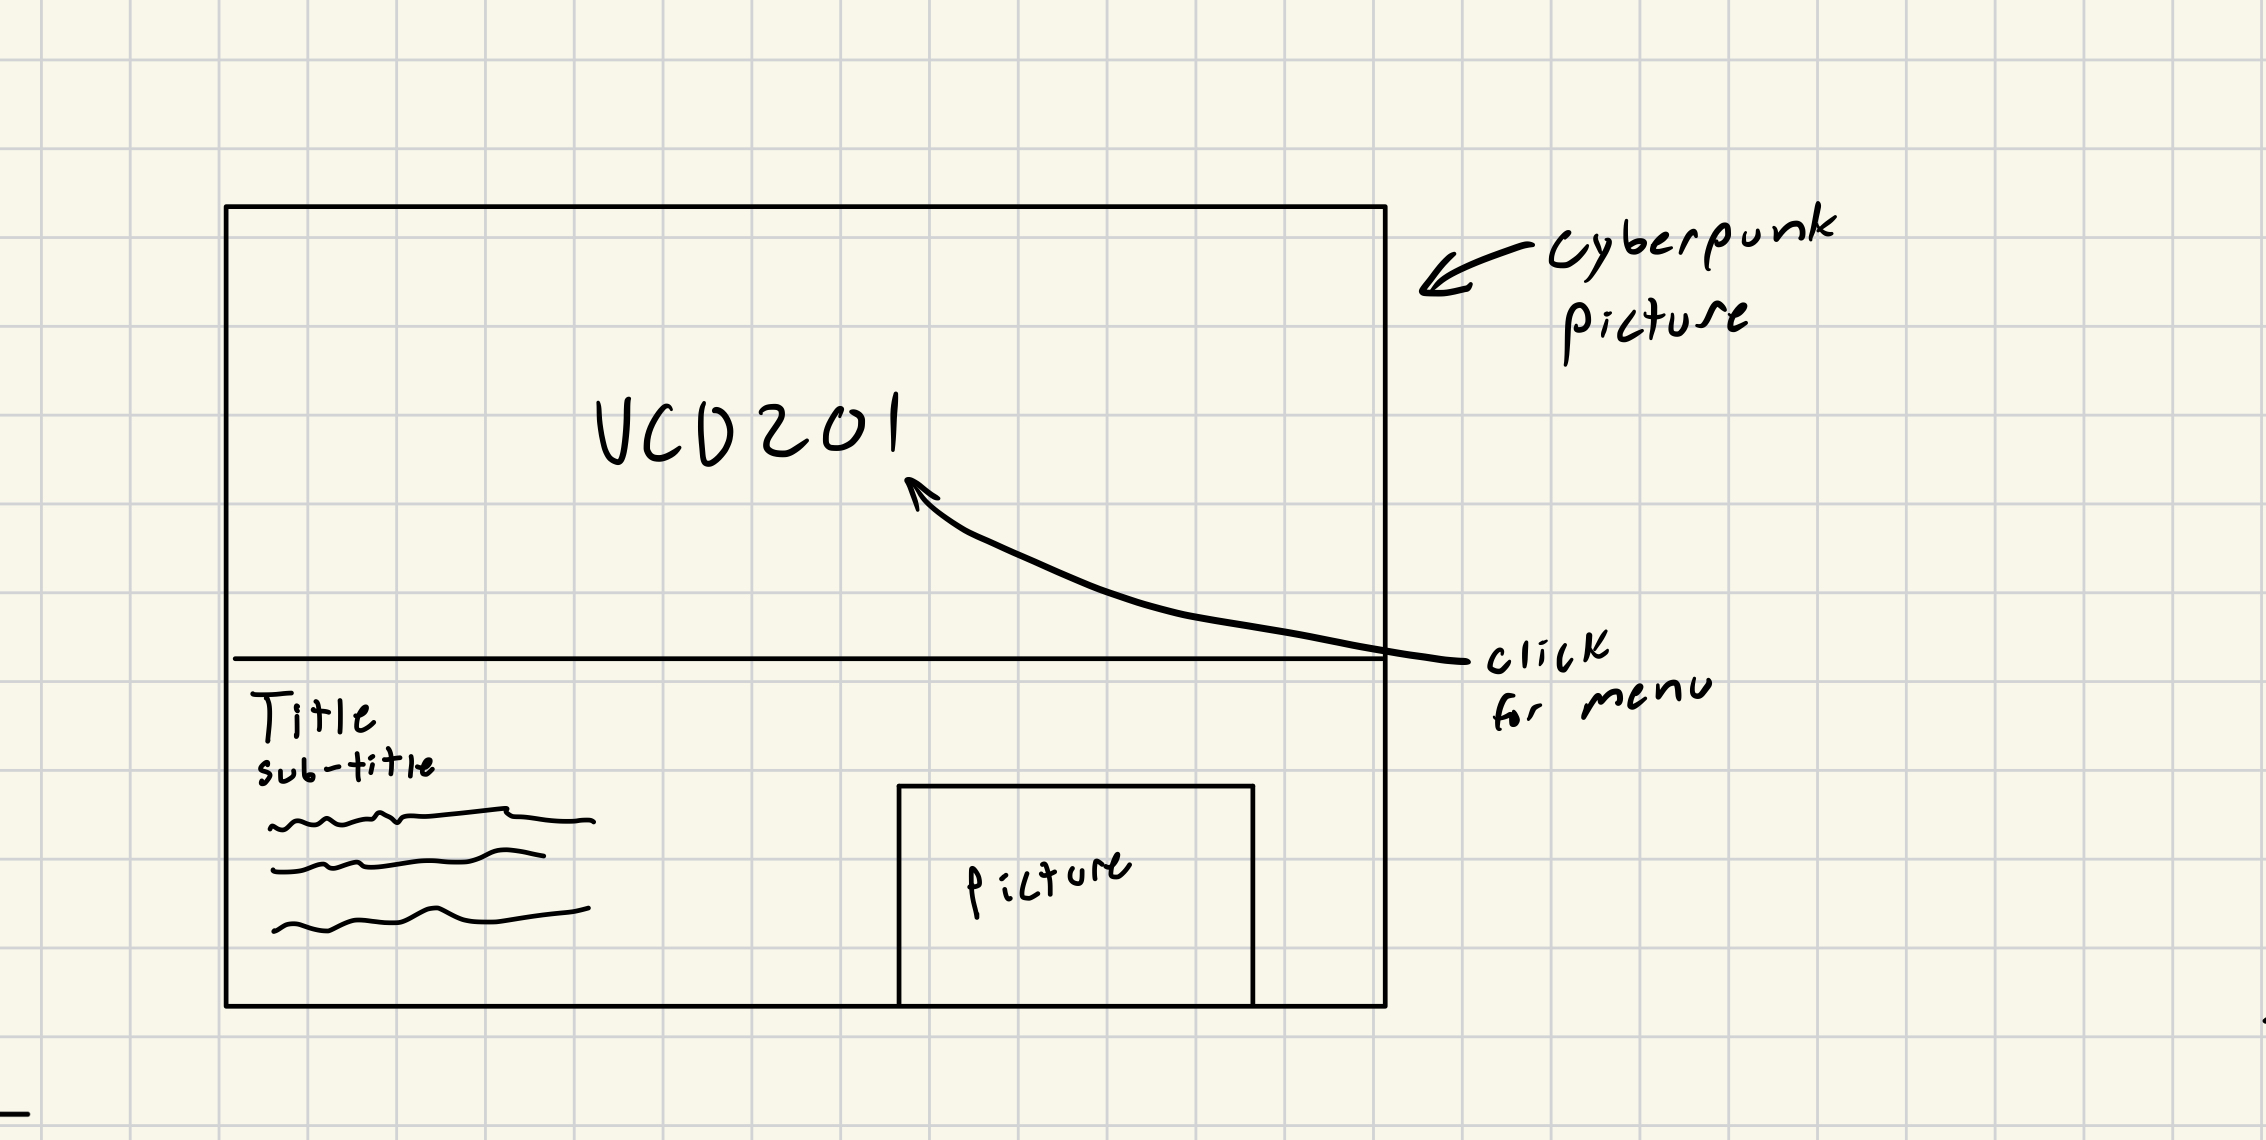 cyberpunk
picture
VCD201
click
for menu
Title
sub-title
picture